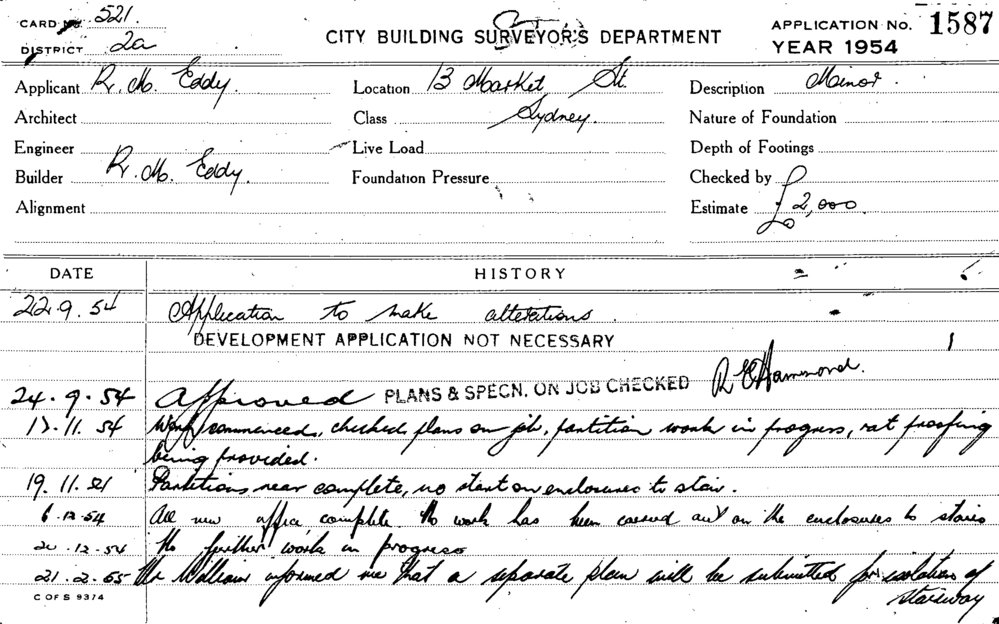 CARD No. 521.
DISTRICT 2a
CITY BUILDING SURVEYOR'S DEPARTMENT
APPLICATION No. 1587
YEAR 1954
Applicant R. M. Eddy.
Location 13 Market St.
Description Minor.
Architect
Class Sydney.
Nature of Foundation
Engineer
Live Load
Depth of Footings
Builder R. M. Eddy.
Foundation Pressure
Checked by
Alignment
Estimate £2,000
DATE HISTORY
22.9.54 Application to make alterations.
DEVELOPMENT APPLICATION NOT NECESSARY
24.9.54 Approved PLANS & SPECN. ON JOB CHECKED R E Hammond.
11.54 Work commenced, checked plans on job, partition work in progress, rat proofing
being provided.
19.11.54 Partitions near complete, no start on enclosures to stair.
6.12.54 All new office complete. No work has been carried out on the enclosures to stairs
20.12.54 No further work in progress
21.2.55 Mr William informed me that a separate plan will be submitted for isolation of
stairway
C OF S 9374